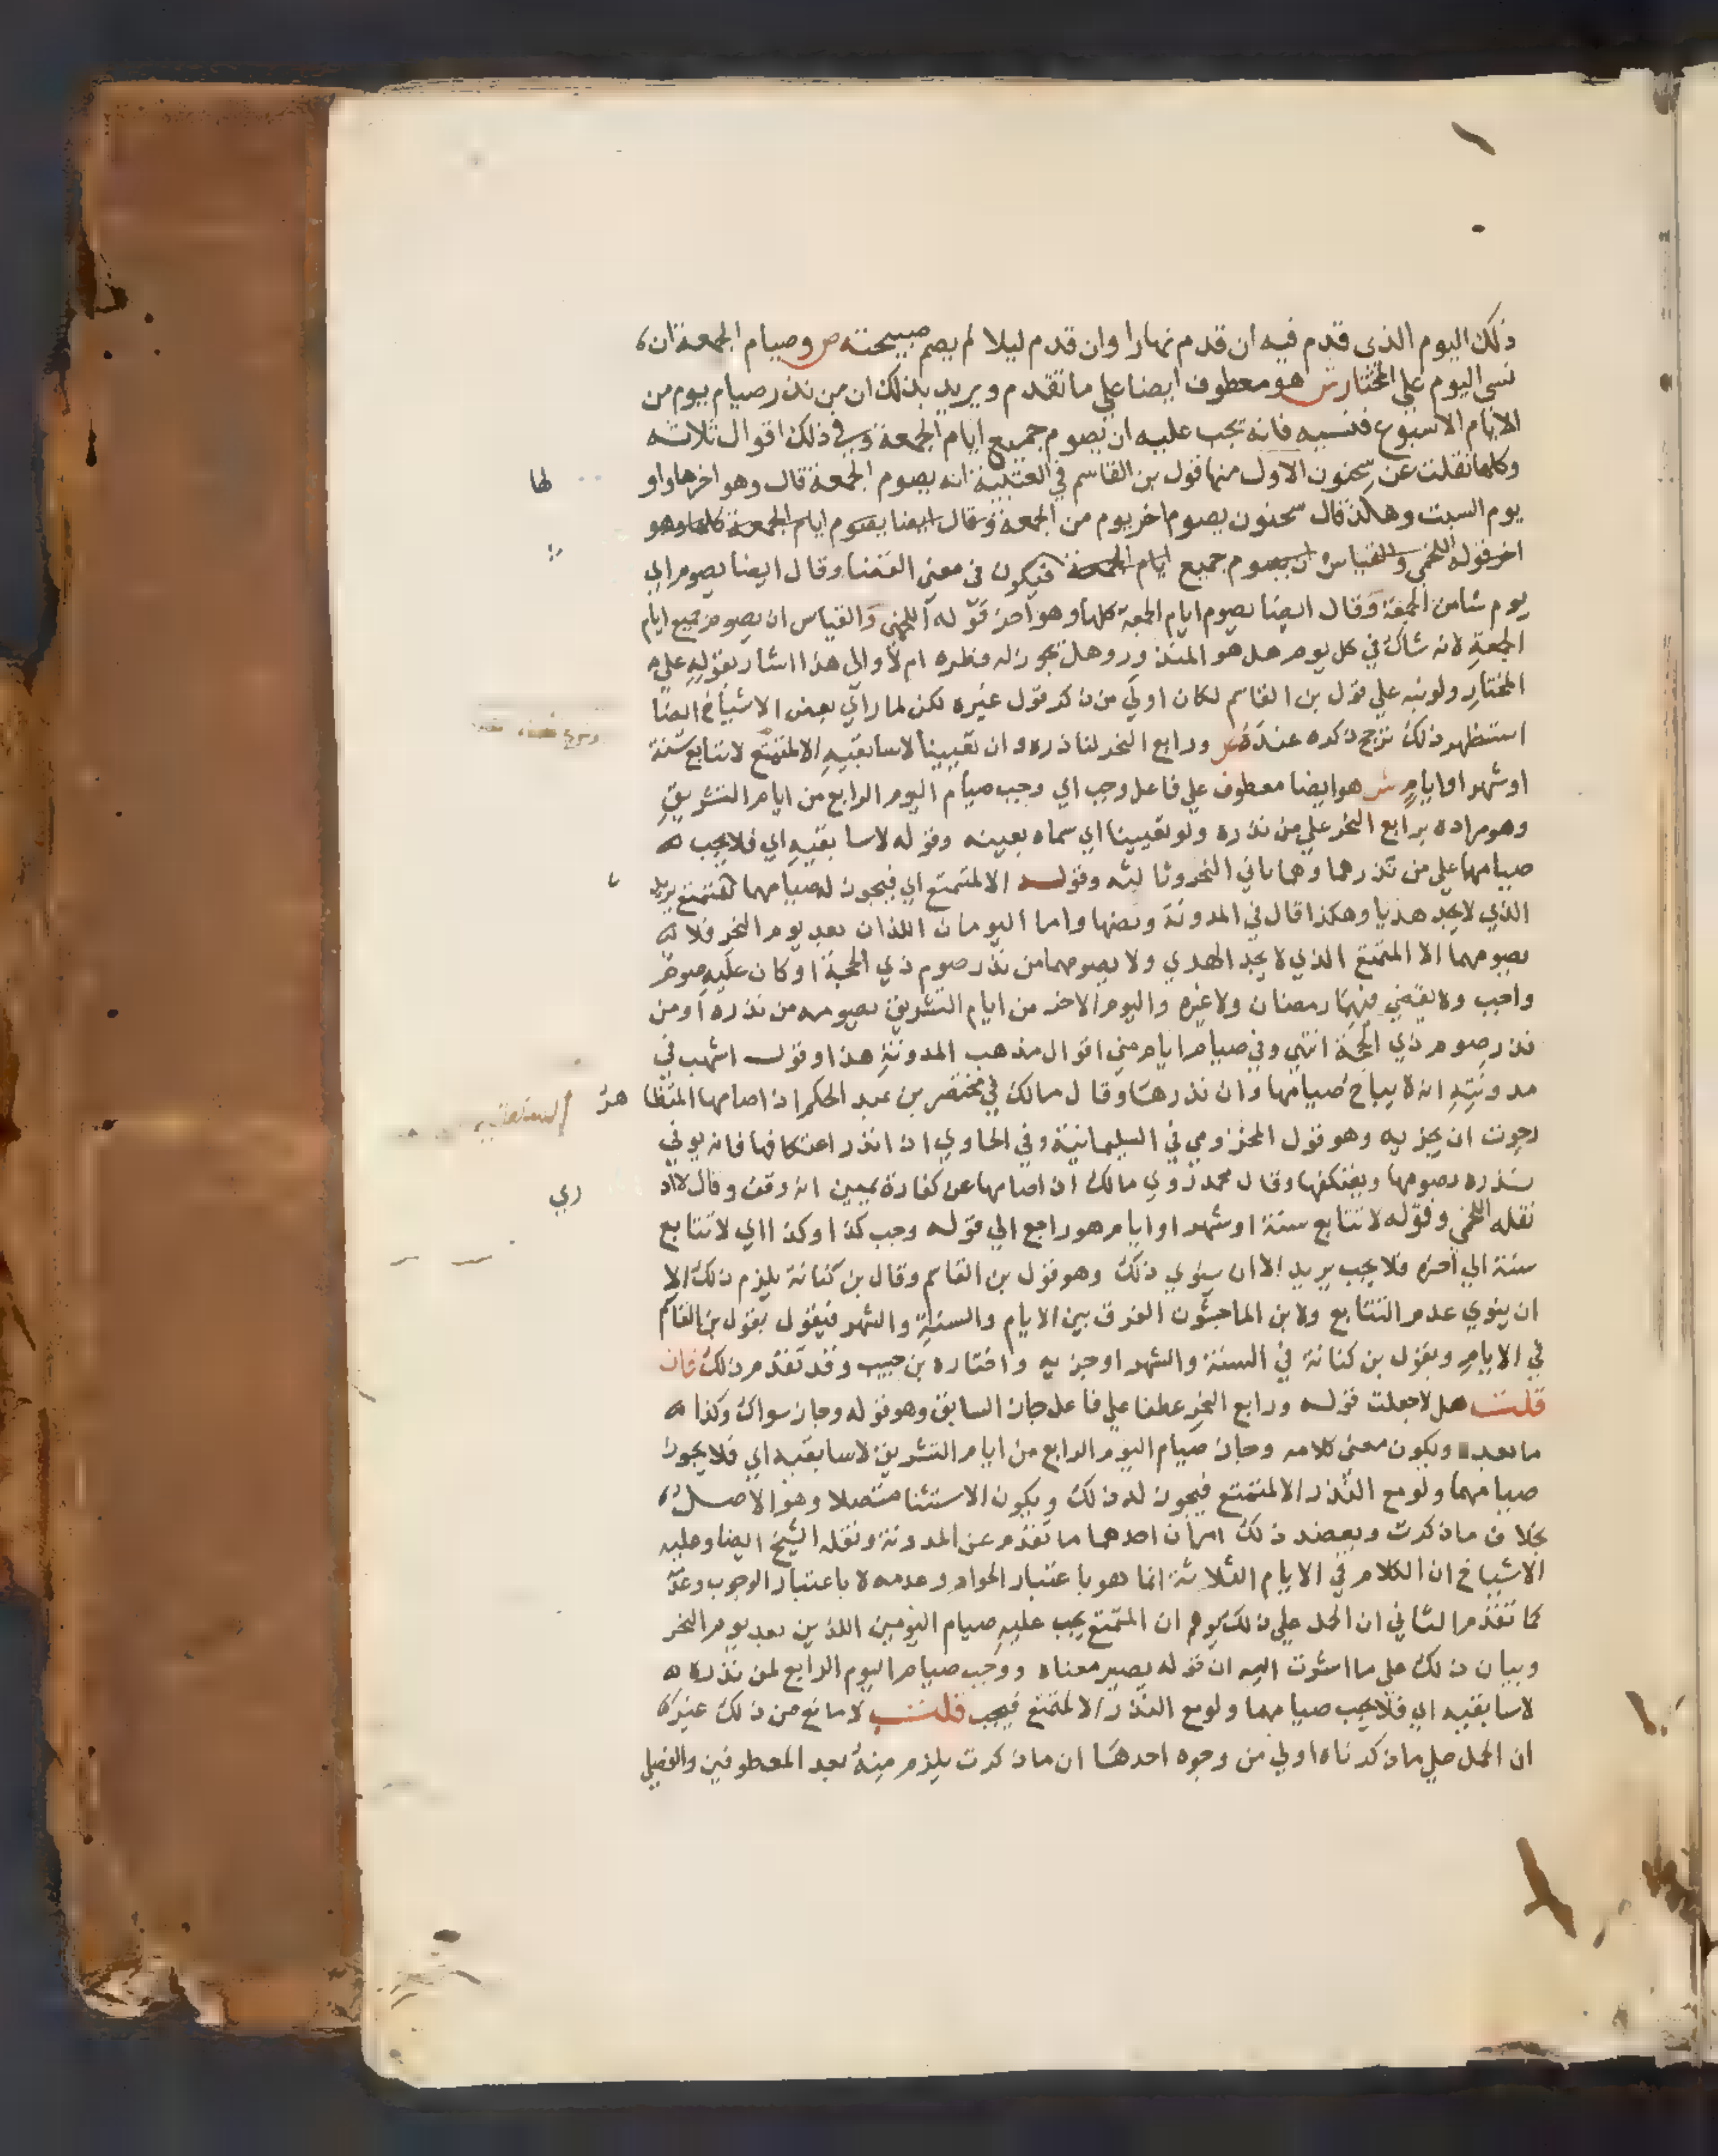 ذلك اليوم الذي قدم فيه ان قدم نهارا وان قدم ليلا لم يصم صبيحته ص وصيام الجمعة ان
نسى اليوم على المختار ش هو معطوف ايضا علي ما تقدم ويريد بذلك ان من نذر صيام يوم من
الايام الاسبوع فنسيه فانه يجب عليه ان يصوم جميع ايام الجمعة وفي ذلك اقوال ثلاثه
وكلها نقلت عن سحنون الاول منها قول بن القاسم في العتبية انه يصوم الجمعة قال وهو اخرها واو لها
يوم السبت وهكذا قال سحنون يصوم اخر يوم من الجمعة وقال ايضا يصوم ايام الجمعة كلها وهو
اخر قوله اللخمي والقياس ان يصوم جميع ايام الجمعة فيكون في معني القضا وقال ايضا يصوم اي
يوم شا من الجمعة وقال ايضا يصوم ايام الجمعة كلها وهو احز قوله اللخمي والقياس ان يصوم جميع ايام
الجمعة لانه شاك في كل يوم هل هو المنذور وهل يجوز له فطره ام لا والي هذا اشار بقوله علي
المختار ولو نبه علي قول بن القاسم لكان اولي من ذكر قول غيره لكن لما راي بعض الاشياخ ايضا
استظهر ذلك ترجح ذكره عنده ص ورابع النحر لناذره وان تعيينا لا سابقيه الا لمتمتع لا تتابع سنة
او شهر او ايام ش هو ايضا معطوف علي فاعل وجب اي وجب صيام اليوم الرابع من ايام التشريق
وهو مراده برابع النحر علي من نذره ولو تعيينا اي سماه بعينه وقوله لا سابقيه اي فلا يجب
صيامهما علي من نذرهما وهما ثاني النحر وثالثه وقوله الا لمتمتع اي فيجوز له صيامهما كمتمتع يريد
الذي لا يجد هديا وهكذا قال في المدونة ونصها واما اليومان اللذان بعد يوم النحر فلا
يصومهما الا المتمتع الذي لا يجد الهدي ولا يصومهما من نذر صوم ذي الحجة او كان عليه صوم
واجب ولا يقضي فيهما رمضان ولا غيره واليوم الاخر من ايام التشريق يصومه من نذره او من
نذر صوم ذي الحجة انتهي وفي صيام ايام مني اقوال مذهب المدونة هذا وقول اشهب في
مدونته انه لا يباح صيامها وان نذرها وقال مالك في مختصر بن عبد الحكم اذا صامها المتظا هر
رجوت ان يجزيه وهو قول المخزومي في السليمانية وفي الحاوي اذا نذر اعتكافها فانه يوفي
بنذره يصومها ويعتكفها وقال محمد روي مالك ان صامها عن كفارة يمين انه وقف وقال لا اد ري
نقله اللخمي وقوله لا تتابع سنة او شهر او ايام هو راجع الي قوله وجب كذا وكذا اي لا تتابع
سنة الي اخره فلا يجب يريد الا ان ينوي ذلك وهو قول بن القاسم وقال بن كنانة يلزم ذلك الا
ان ينوي عدم التتابع ولابن الماجشون الفرق بين الايام والسنة والشهر فيقول بقول بن القاسم
في الايام وبقول بن كنانة في السنة والشهر اوجزيه واختاره بن حبيب وقد تقدم ذلك فان
قلت هل لا جعلت قوله ورابع النحر عطفا علي فاعل جاز السابق وهو قوله وجاز سواك وكذا
ما بعد ويكون معني كلامه وجاز صيام اليوم الرابع من ايام التشريق لا سابقيه اي فلا يجوز
صيامهما ولو مع النذر الا لمتمتع فيجوز له ذلك ويكون الاستثنا متصلا وهو الاصل
بخلاف ما ذكرت ويعضد ذلك امران احدهما ما تقدم عن المدونة ونقله الشيخ ايضا وعليه
الاشياخ ان الكلام في الايام الثلاثة انما هو باعتبار الجواز وعدمه لا باعتبار الوجوب وعدمه
كما تقدم الثاني ان الحمل علي ذلك يوهم ان المتمتع يجب عليه صيام اليومين اللذين بعد يوم النحر
وبيان ذلك علي ما اشرت اليه ان قوله يصير معناه ووجب صيام اليوم الرابع لمن نذره
لا سابقيه اي فلا يجب صيامهما ولو مع النذر الا لمتمتع فيجب قلت لا مانع من ذلك غير
ان الحمل علي ما ذكرناه اولي من وجوه احدها ان ما ذكرت يلزم منه بعد المعطوفين والفصل